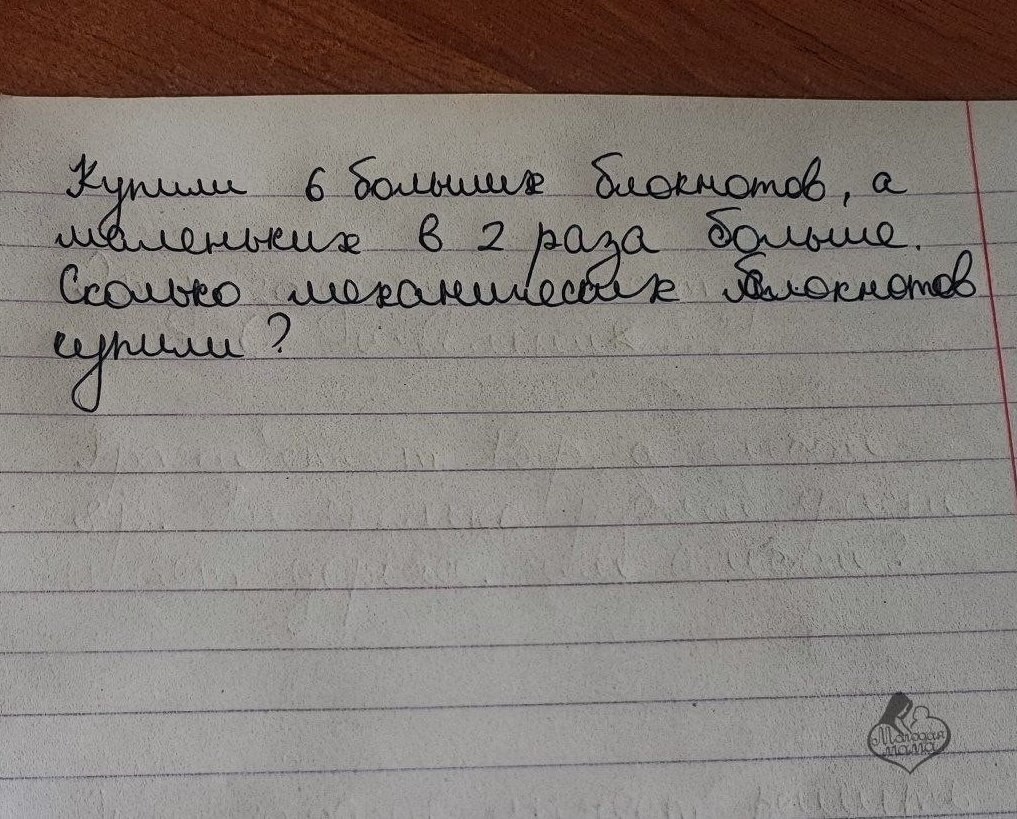 Купили 6 больших блокнотов, а
маленьких в 2 раза больше.
Сколько механических блокнотов
купили?
Молодая
мама